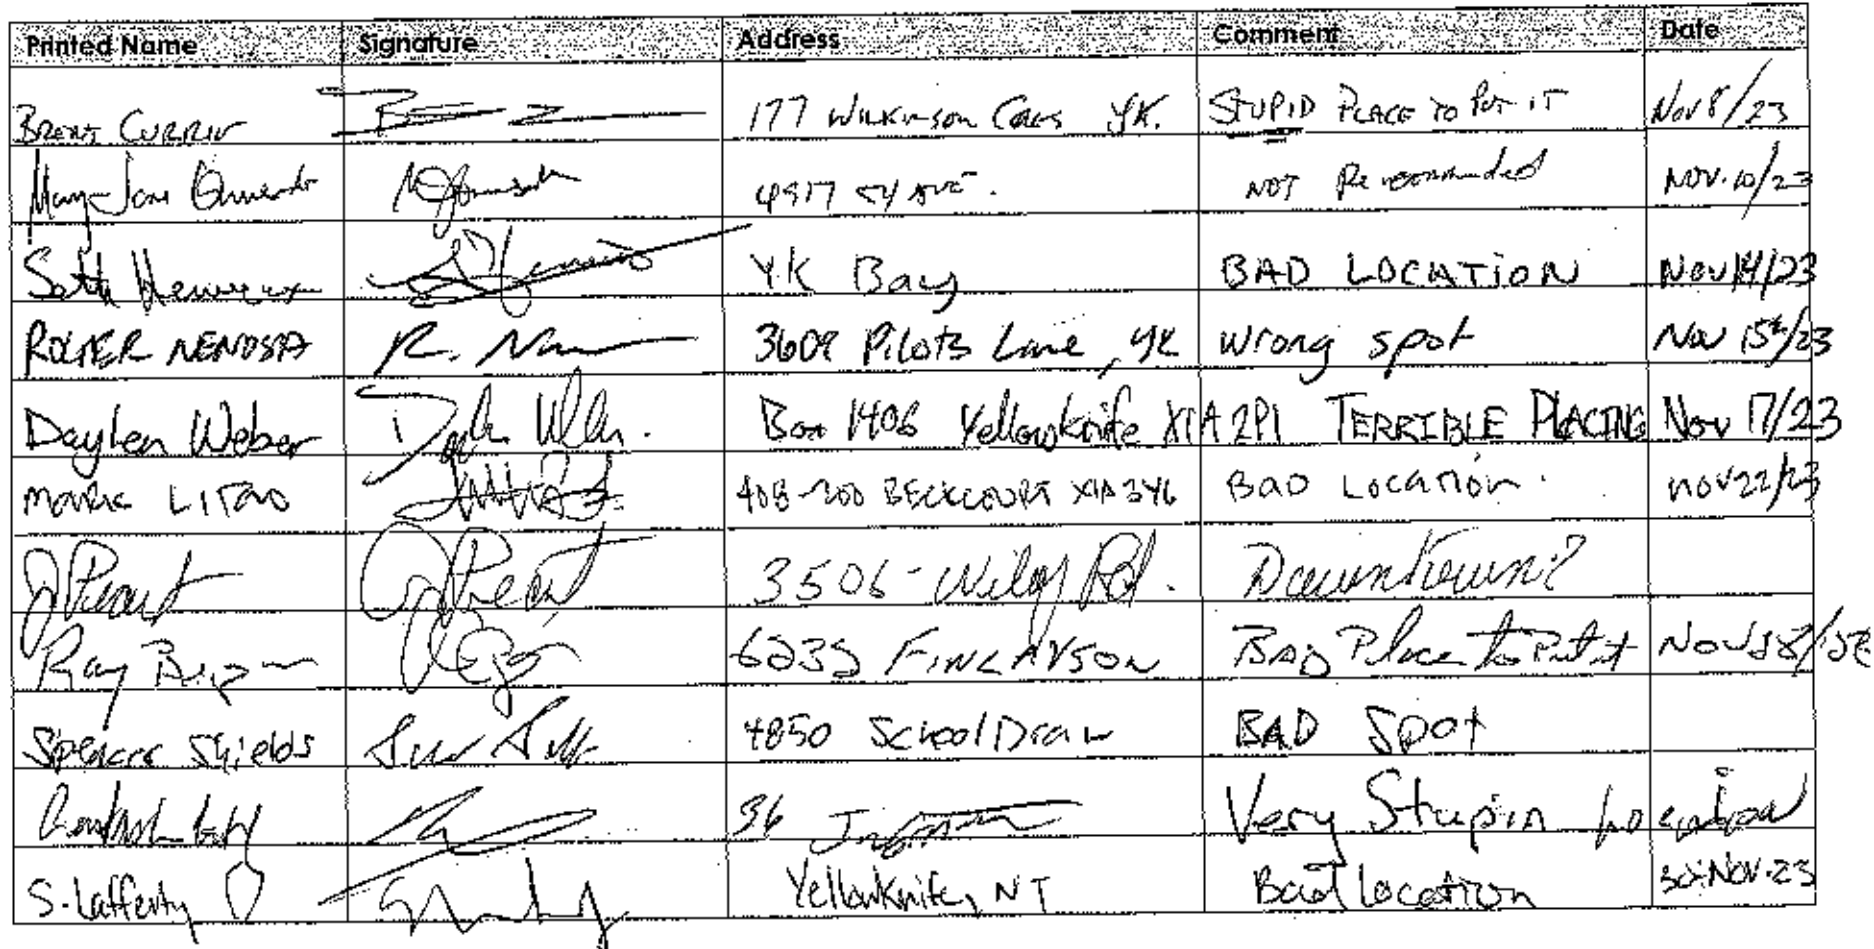 Printed Name Signature Address Comment Date
BRENT CURRIE 177 Wilkinson Cres YK. STUPID PLACE TO PUT IT Nov 8/23
Mary-Jane 4917 54 AVE. NOT Recommended NOV.10/23
YK Bay BAD LOCATION Nov 14/23
ROGER NENDSA R. 3609 Pilots Lane, YK wrong spot Nov 15th/23
Daylen Weber Box 1406 Yellowknife X1A 2P1 TERRIBLE PLACING Nov 17/23
MARK LITAO 408-200 BECKCOURT X1A3Y6 BAD LOCATION. NOV 22/23
3506- Wiley Rd. Downtown?
Ray 6235 FINLAYSON BAD Place to Put it
Spencer Shields 4850 School Draw BAD Spot
36 Very Stupid Location
S. Lafferty Yellowknife, NT Bad location 30.NOV.23